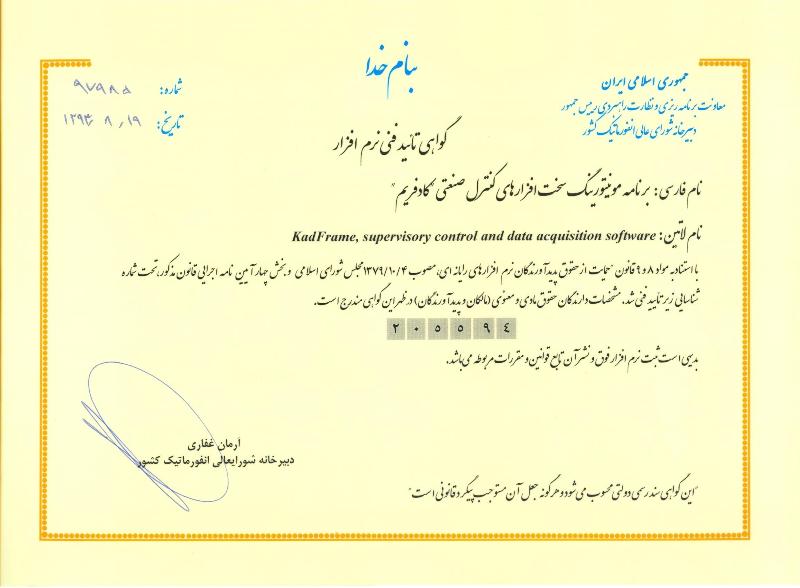 بنام خدا
جمهوری اسلامی ایران
معاونت برنامه ریزی و نظارت راهبردی رییس جمهور
دبیرخانه شورای عالی انفورماتیک کشور
شماره: ۹۷۹۸۵
تاریخ: ۱۳۹۳/۸/۱۹
گواهی تائید فنی نرم افزار
نام فارسی: برنامه مونیتورینگ سخت افزارهای کنترل صنعتی "کادفریم"
نام لاتین: KadFrame, supervisory control and data acquisition software
با استناد به مواد ۸ و ۹ قانون "حمایت از حقوق پدیدآورندگان نرم افزارهای رایانه ای، مصوب ۱۳۷۹/۱۰/۴ مجلس شورای اسلامی و بخش چهار آیین نامه اجرایی قانون مذکور، تحت شماره
شناسایی زیر تایید فنی شد. مشخصات دارندگان حقوق مادی و معنوی (مالکان و پدیدآورندگان) در ظهر این گواهی مندرج است.
۲۰۵۵۹۴
بدیهی است ثبت نرم افزار فوق و نشر آن تابع قوانین و مقررات مربوطه می باشد.
آرمان غفاری
دبیرخانه شورایعالی انفورماتیک کشور
"این گواهی سند رسمی دولتی محسوب می شود و هرگونه جعل آن مستوجب پیگرد قانونی است"